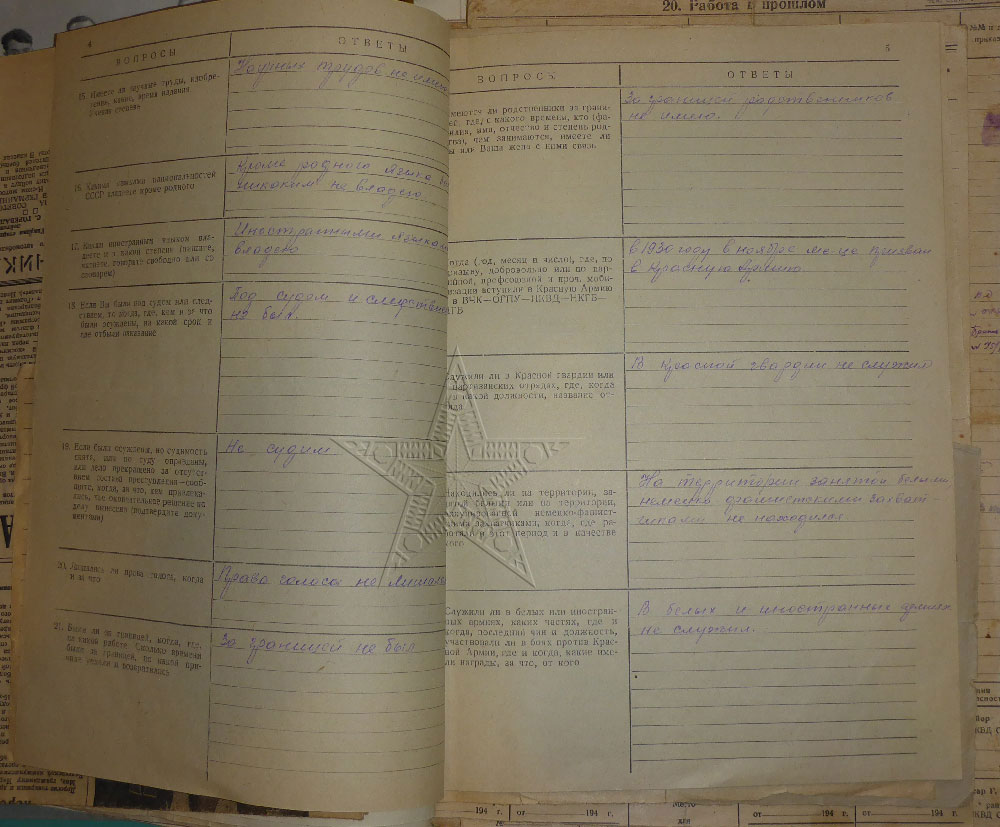 20. Работа в прошлом
4
ВОПРОСЫ
ОТВЕТЫ
15. Имеете ли научные труды, изобре-
тения, какие, время издания
Ученая степень
Научных трудов не имею
16. Какими языками национальностей
СССР владеете кроме родного
Кроме родного языка
никаким не владею.
17. Каким иностранным языком вла-
деете и в какой степени (пишете,
читаете, говорите свободно или со
словарем)
Иностранными языками
владею
18. Если Вы были под судом или след-
ствием, то когда, где, кем и за что
были осуждены, на какой срок и
где отбыли наказание
Под судом и следствием
не был.
19. Если были осуждены, но судимость
снята, или по суду оправданы,
или дело прекращено за отсутст-
вием состава преступления—сооб-
щите, когда, за что, кем привлека-
лись, где окончательное решение по
делу вынесено (подтвердите доку-
ментами)
Не судим
20. Лишались ли права голоса, когда
и за что
Права голоса не лишался
21. Были ли за границей, когда, где,
на какой работе. Сколько времени
были за границей, по какой при-
чине уехали и возвратились
За границей не был
5
ВОПРОСЫ
ОТВЕТЫ
имеются ли родственники за грани-
цей, где, с какого времени, кто (фа-
милия, имя, отчество и степень род-
ства), чем занимаются, имеете ли
вы или Ваша жена с ними связь
За границей родственников
не имею.
когда (год, месяц и число), где, по
призыву, добровольно или по пар-
тийной, профсоюзной и проч. моби-
лизации вступили в Красную Армию
в ВЧК—ОГПУ—НКВД—НКГБ—
МГБ
в 1930 году в ноябре м-ца призван
в Красную Армию.
служили ли в Красной гвардии или
партизанских отрядах, где, когда
в какой должности, название от-
ряда
В Красной гвардии не служил
Находились ли на территории, за-
нятой белыми или на территории,
оккупированной немецко-фашист-
скими захватчиками, когда, где ра-
ботали в этот период и в качестве
кого
На территории занятой белыми
немецко фашистскими захват-
чиками не находился
Служили ли в белых или иностран-
ных армиях, каких частях, где и
когда, последний чин и должность,
участвовали ли в боях против Крас-
ной Армии, где и когда, какие име-
ли награды, за что, от кого
В белых и иностранных армиях
не служил.
194 г.
от
194 г.
от
194 г.